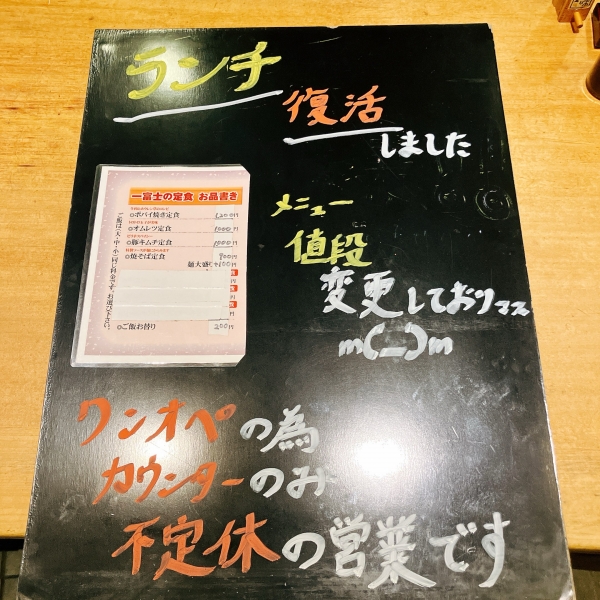 ランチ
復活
しました
一富士の定食 お品書き
○ポパイ焼き定食 1,200円
○オムレツ定食 1000円
○豚キムチ定食 1000円
○焼そば定食 900円
麺大盛り+100円
○ご飯お替り 200円
ご飯は(大・中・小)同じ料金です。お選び下さい。
メニュー
値段
変更しておりマス
m(_ _)m
ワンオペの為
カウンターのみ
不定休の営業です